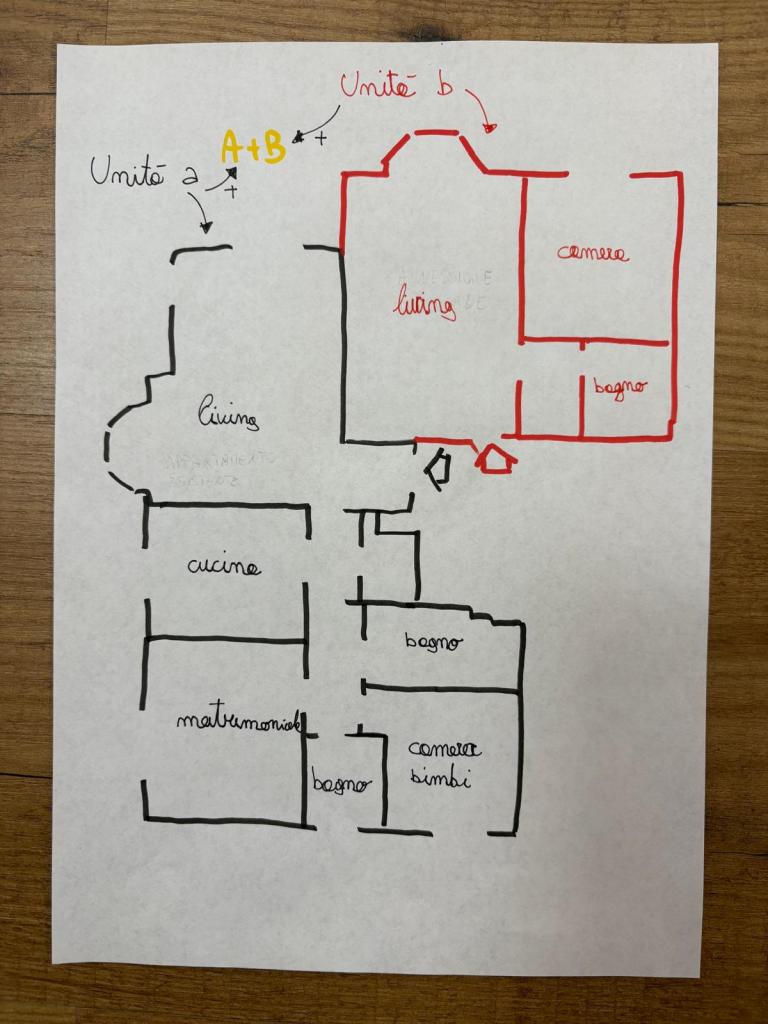 Unità b
A+B
+
Unità a
+
camera
living
bagno
living
cucina
bagno
matrimoniale
camera
bimbi
bagno